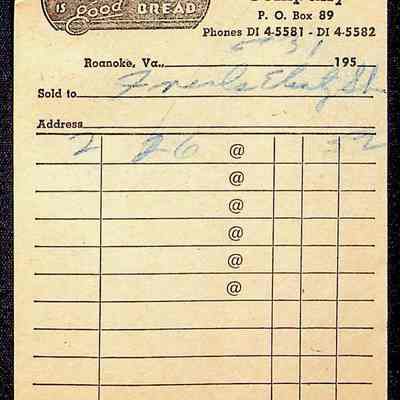 IS good BREAD
Company
P. O. Box 89
Phones DI 4-5581 - DI 4-5582
Roanoke, Va., 5-31 195
Sold to
Address
2 26 @ 52
@
@
@
@
@